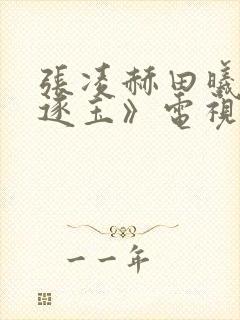 張凌赫田曦
逐玉》電視
一一年